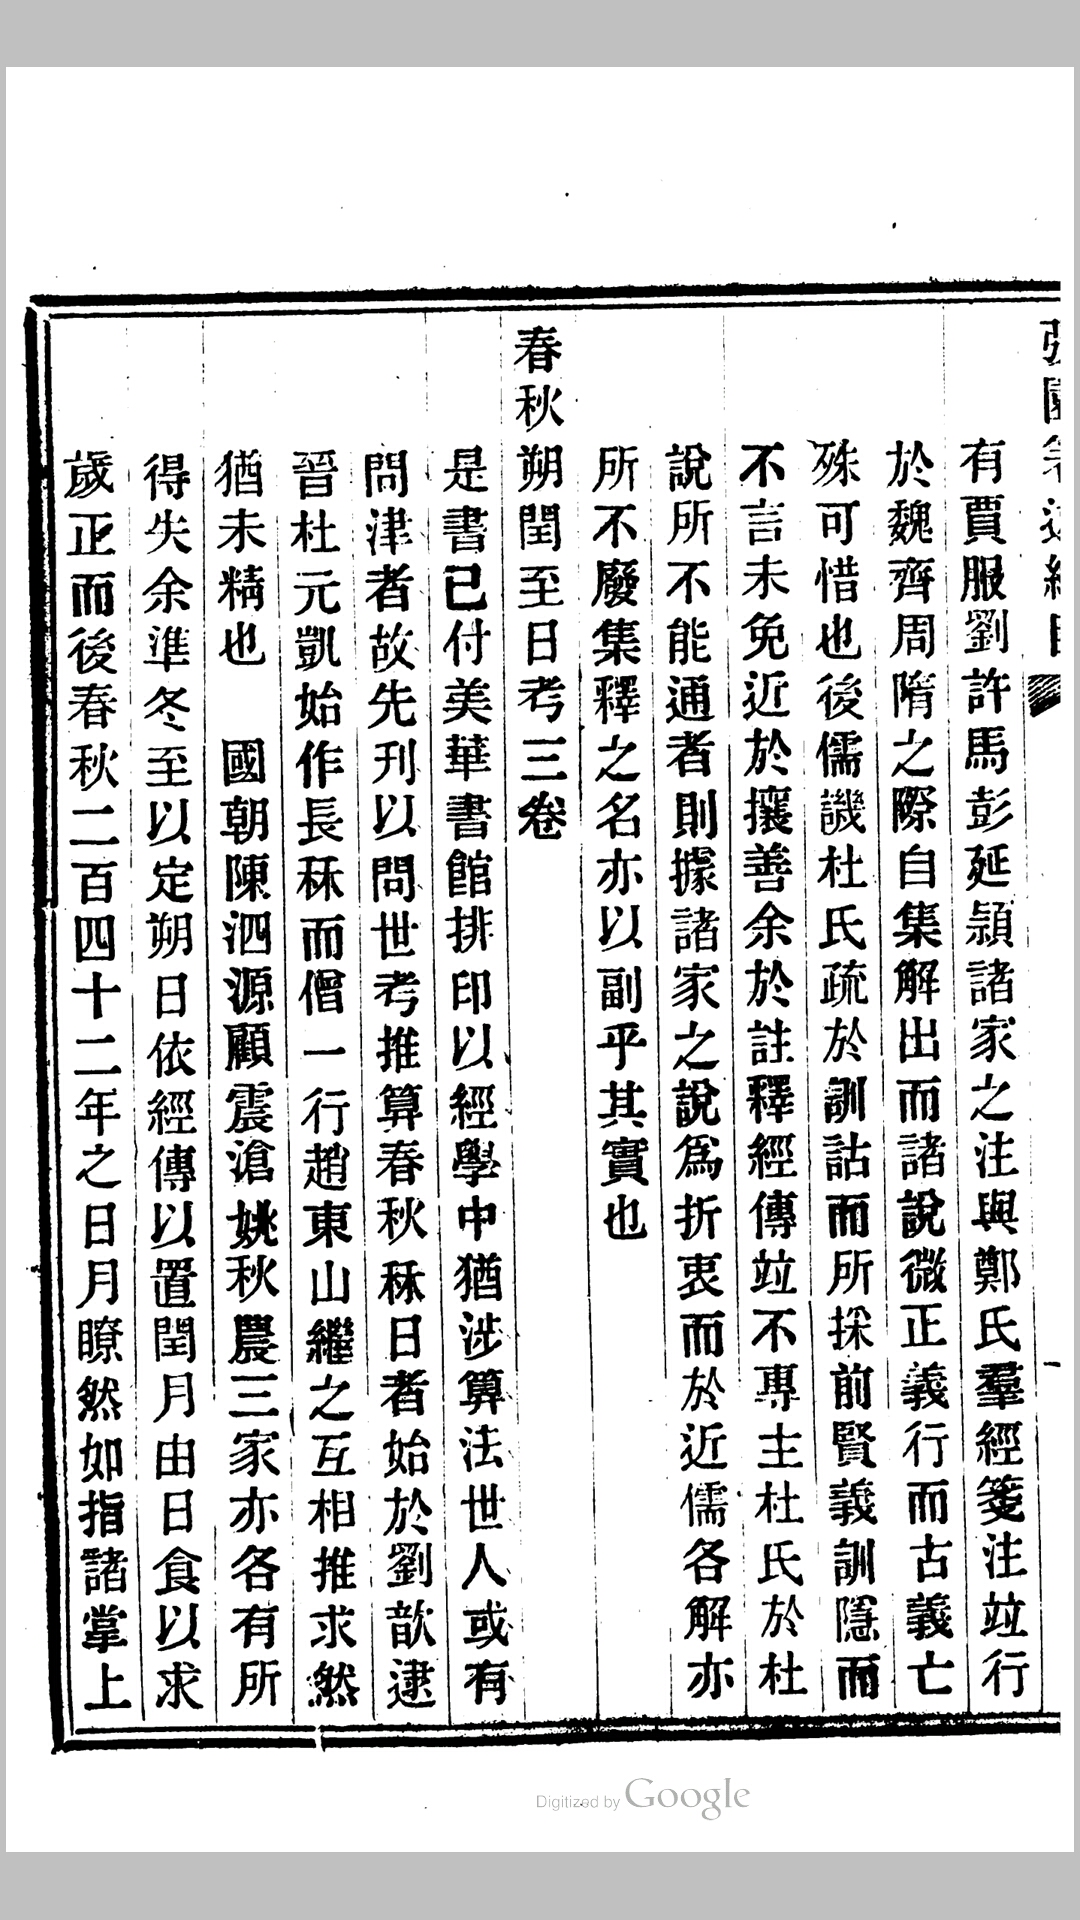 有賈服劉許馬彭延頴諸家之注與鄭氏羣經箋注竝行
於魏齊周隋之際自集解出而諸說微正義行而古義亡
殊可惜也後儒譏杜氏疏於訓詁而所採前賢義訓隱而
不言未免近於攘善余於註釋經傳竝不專主杜氏於杜
說所不能通者則據諸家之說爲折衷而於近儒各解亦
所不廢集釋之名亦以副乎其實也
春秋朔閏至日考三卷
是書已付美華書館排印以經學中猶涉算法世人或有
問津者故先刊以問世考推算春秋秝日者始於劉歆逮
晉杜元凱始作長秝而僧一行趙東山繼之互相推求然
猶未精也　國朝陳泗源顧震滄姚秋農三家亦各有所
得失余準冬至以定朔日依經傳以置閏月由日食以求
歲正而後春秋二百四十二年之日月瞭然如指諸掌上
一
Digitized by Google